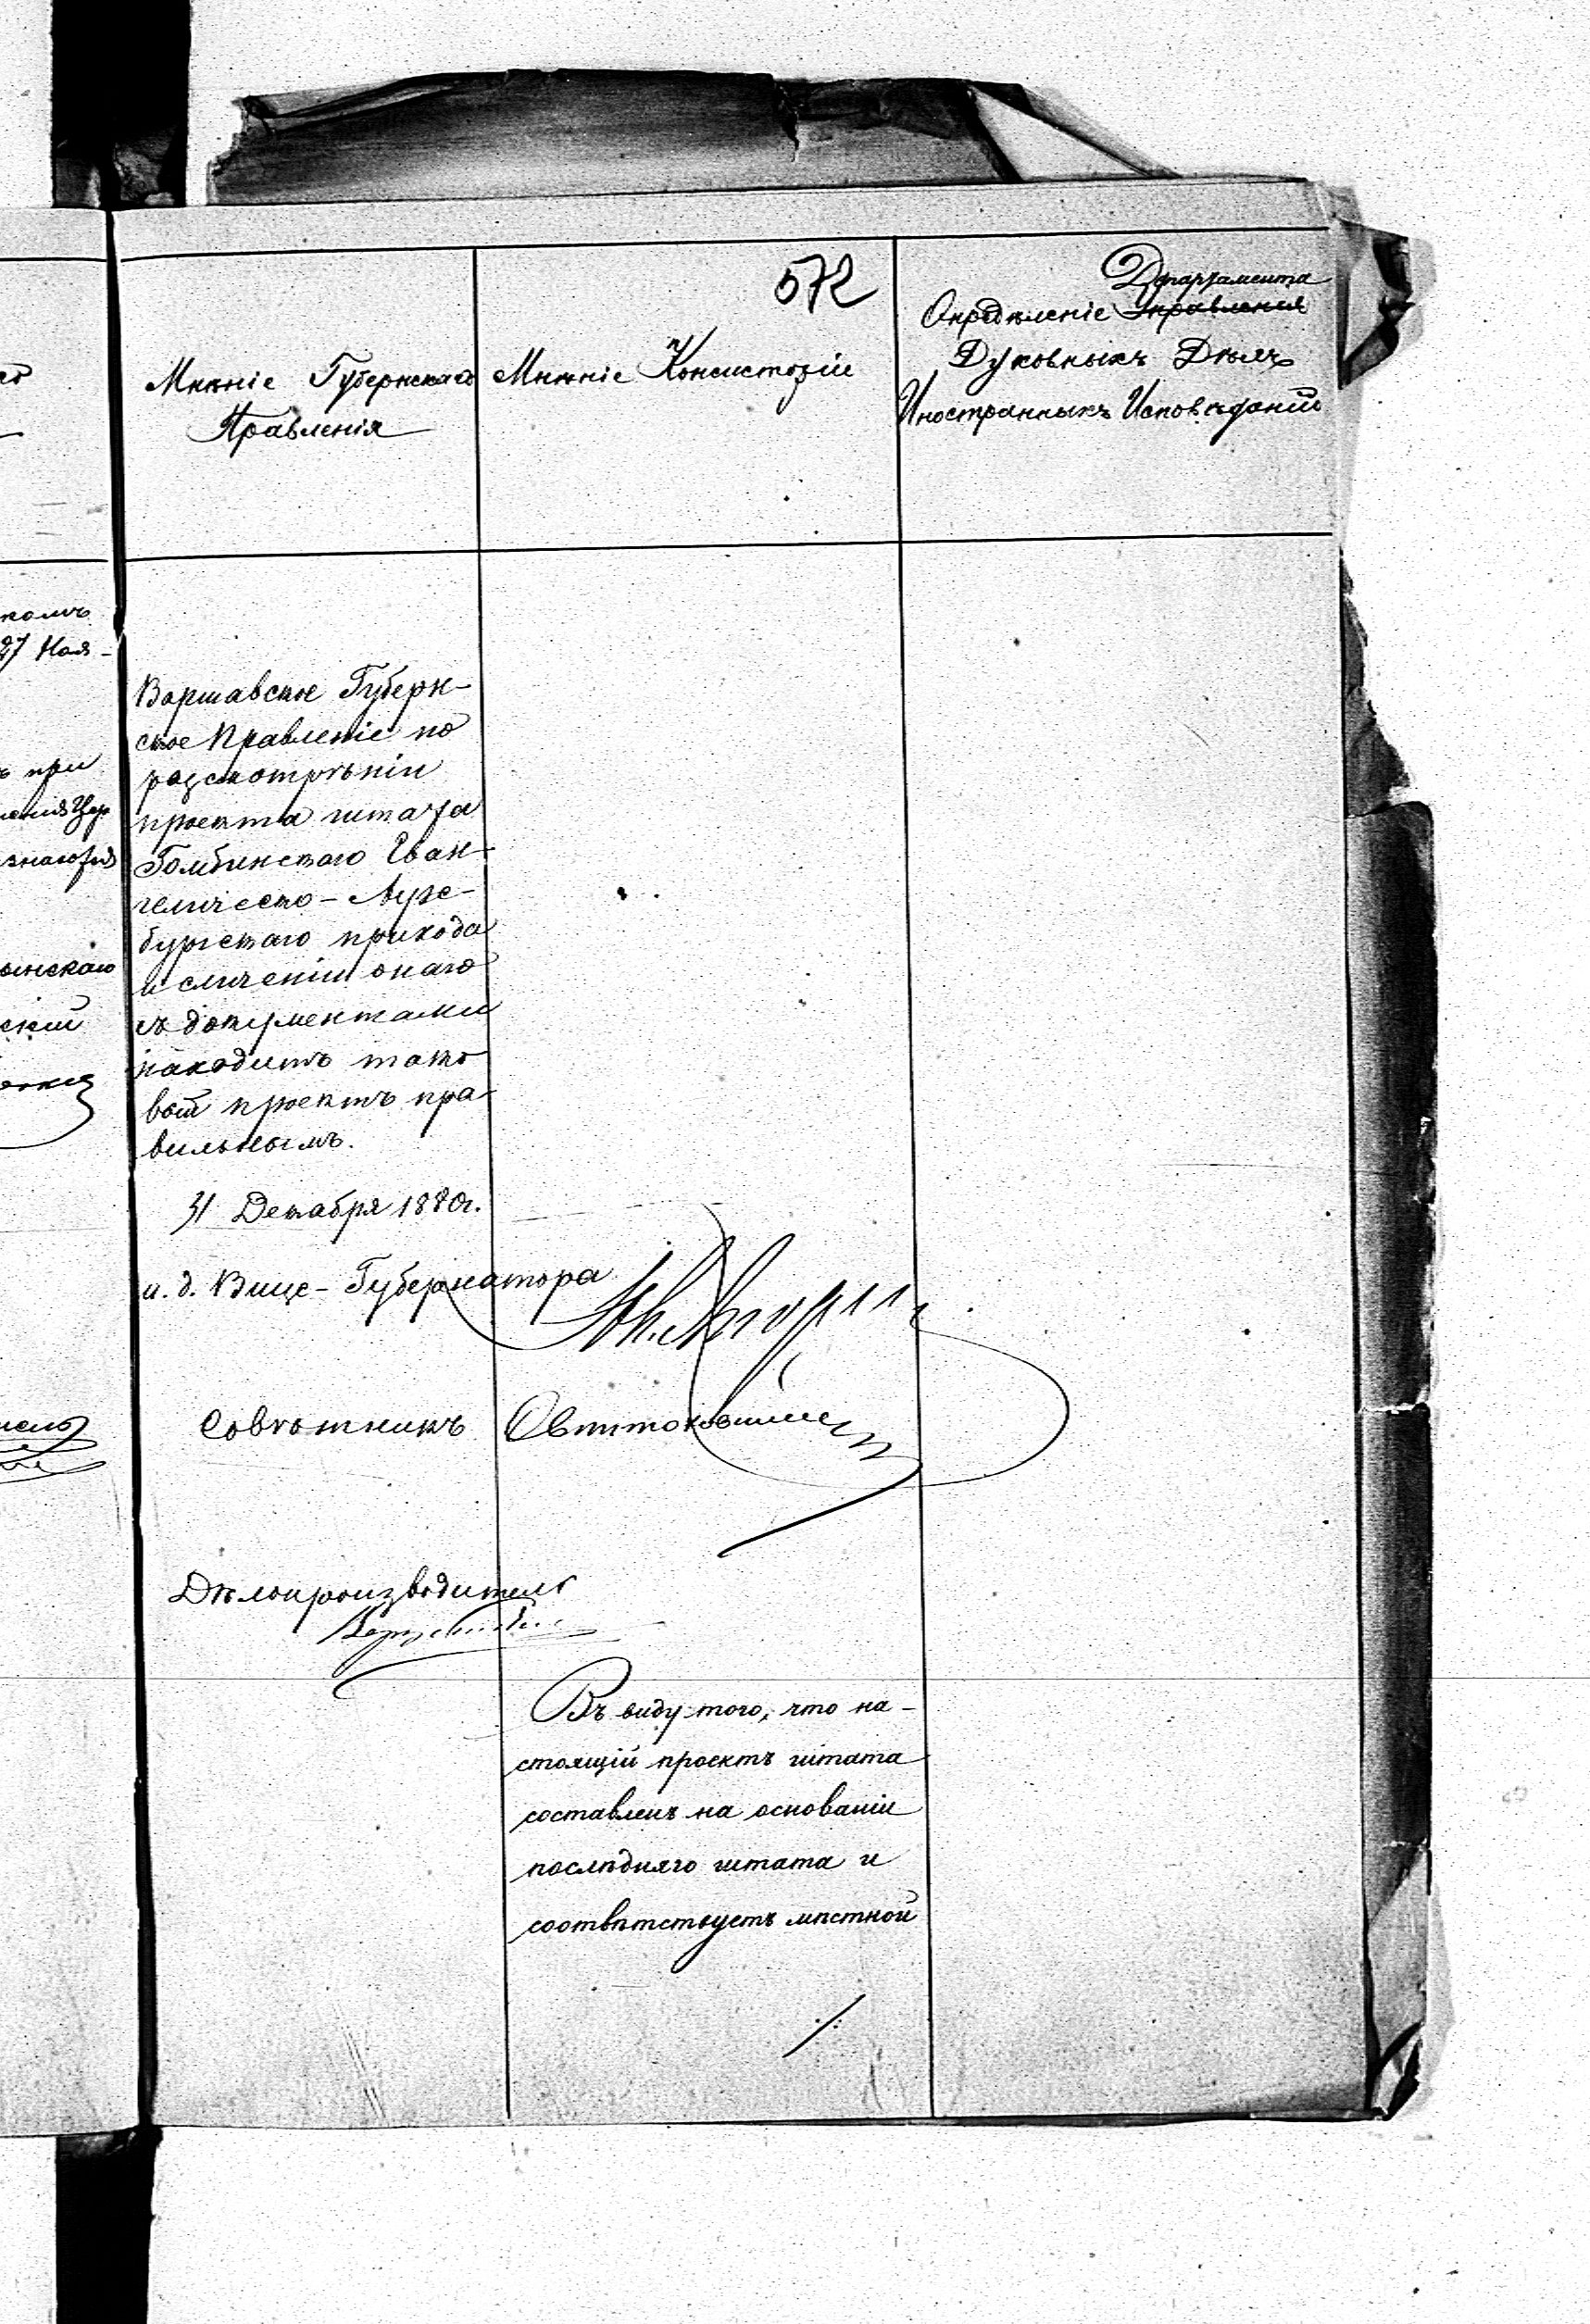 572
Мнѣніе Губернскаго
Правленія
Мнѣніе Консисторіи
Департамента
Опредѣленіе Управленія
Духовныхъ Дѣлъ
Иностранныхъ Исповѣданій
комъ
27 Ноя-
ъ при
Варшавское Губерн-
ское Правленіе по
разсмотрѣніи
проекта штата
Гомбинскаго Еван-
гелическо-Аугс-
бургскаго прихода
и сличеніи онаго
съ документами
находитъ тако
вой проектъ пра-
вильнымъ.
31 Декабря 1880г.
и. д. Вице-Губернатора
Совѣтникъ
Дѣлопроизводитель
Въ виду того, что на-
стоящій проектъ штата
составленъ на основаніи
послѣдняго штата и
соотвѣтствуетъ мѣстной
./.